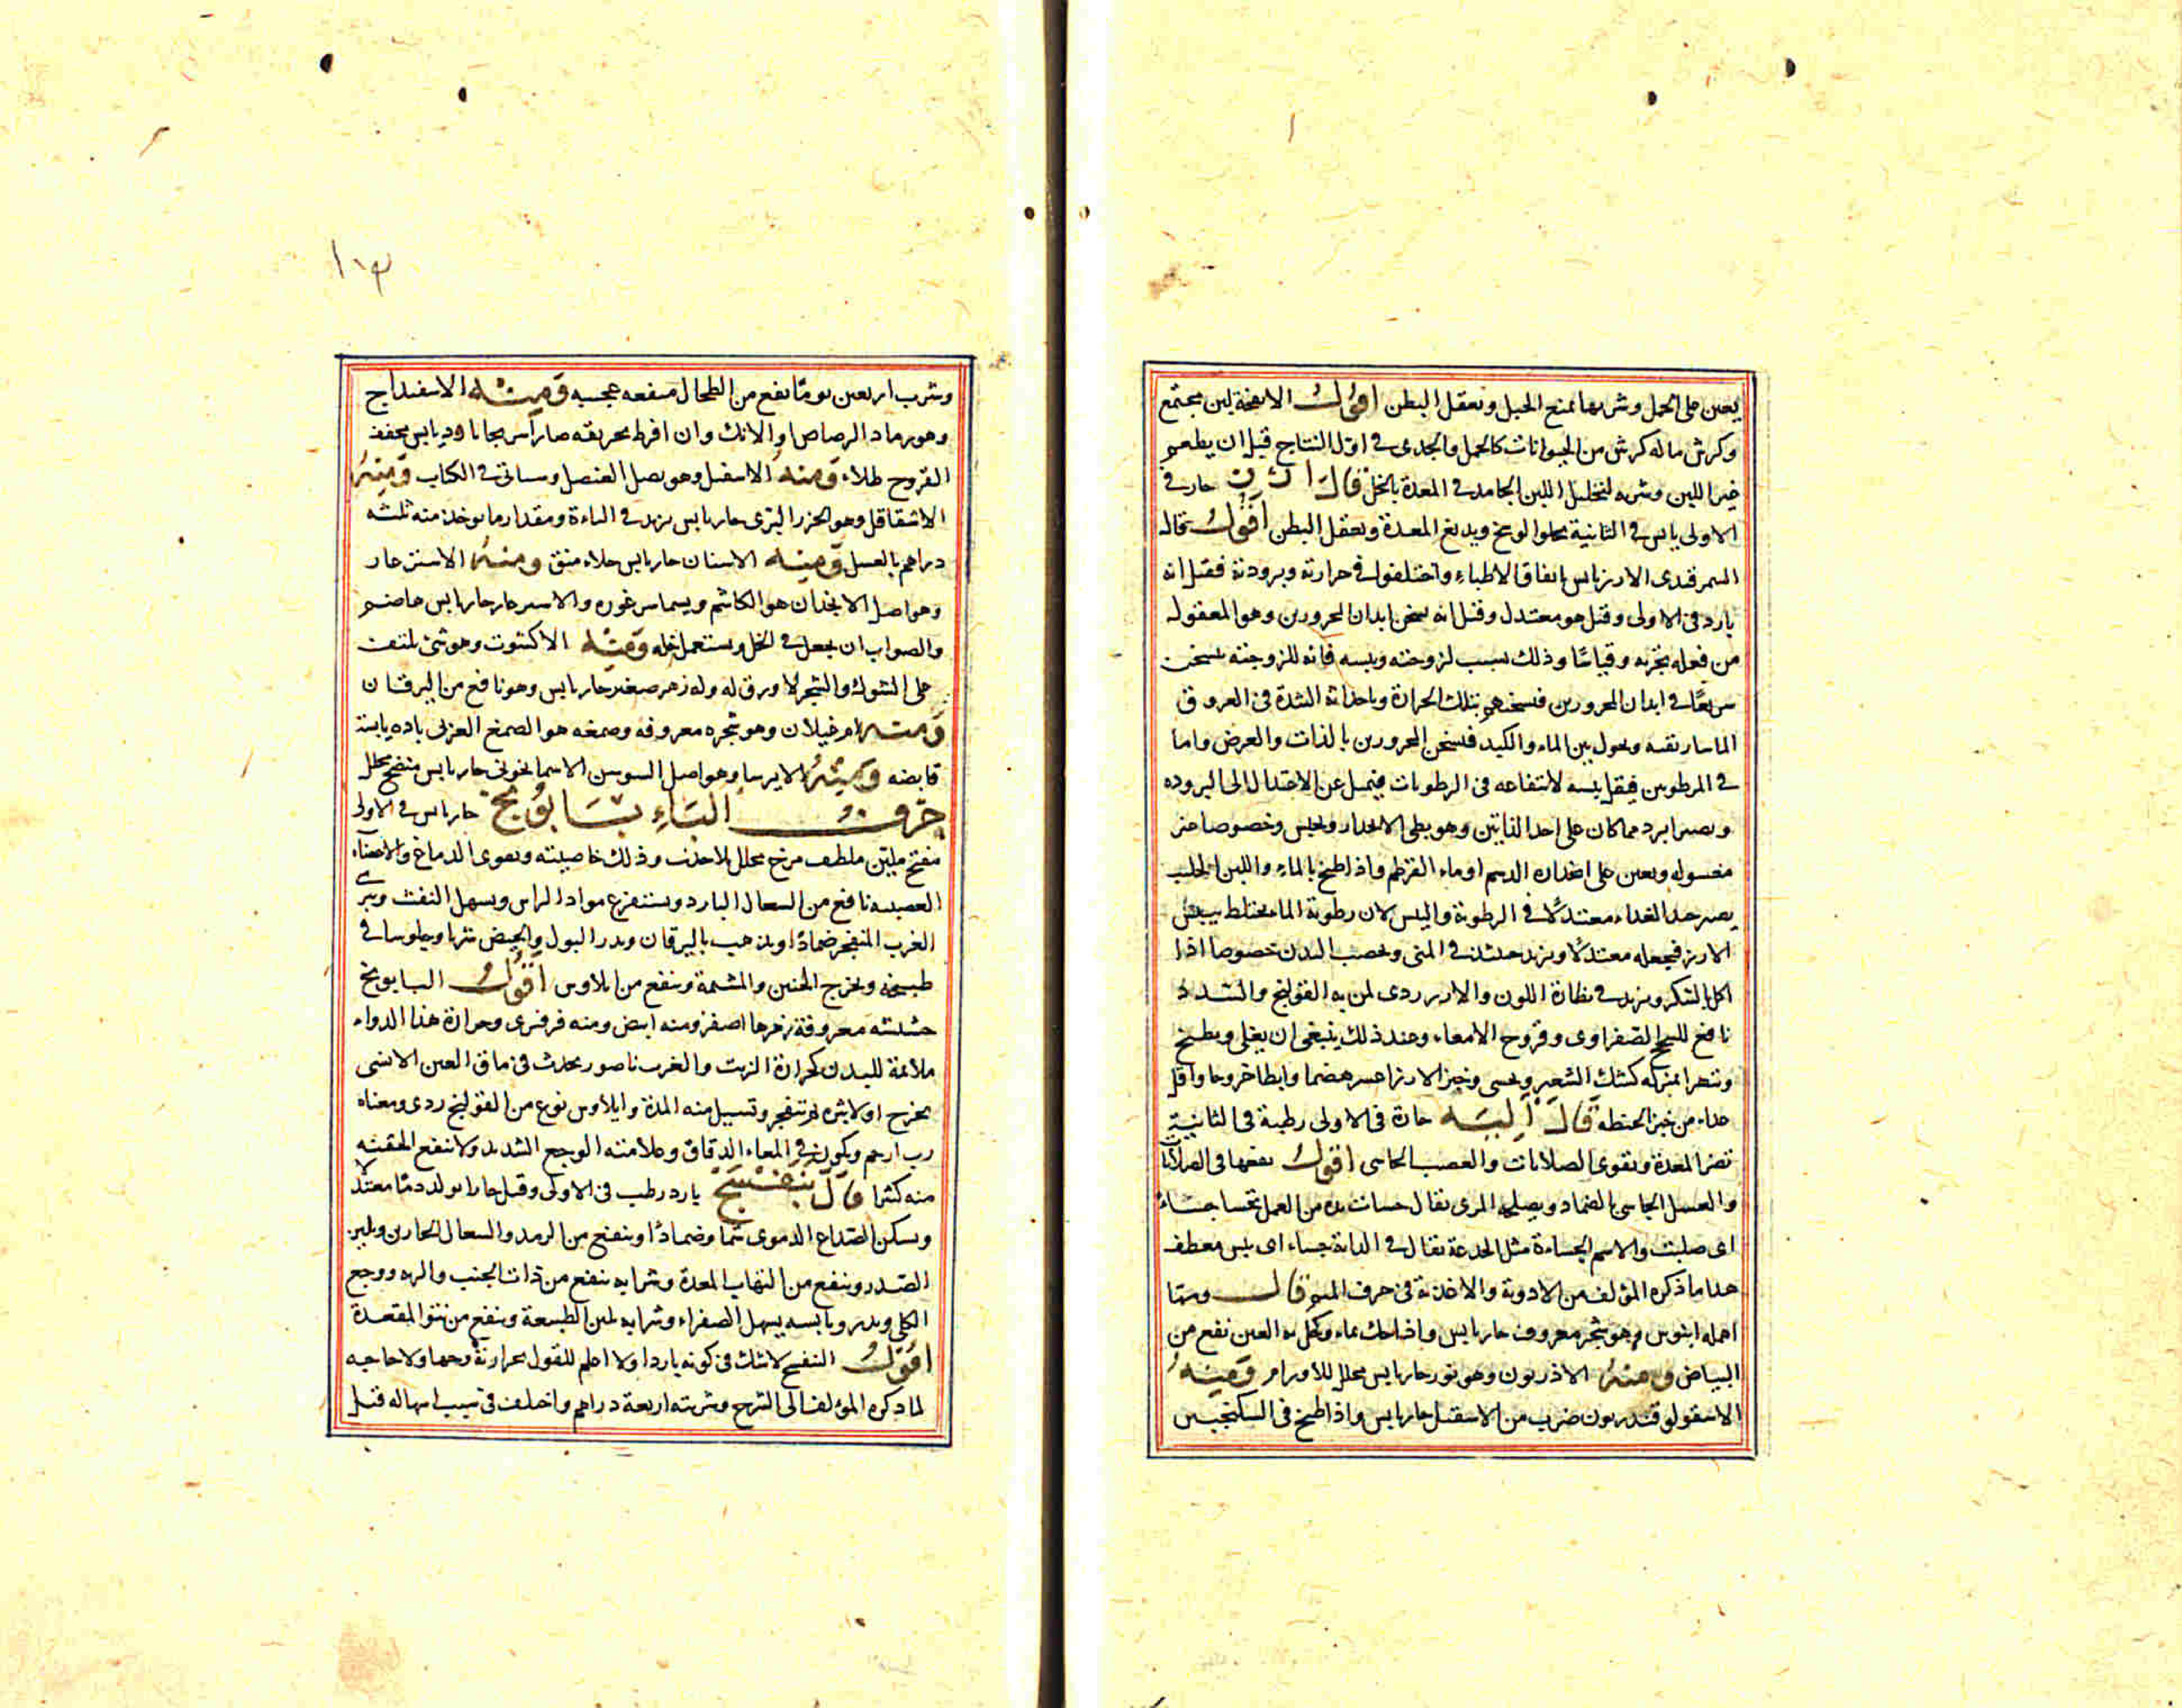 يعين على الحمل وشربها يمنع الحبل ويعقل البطن اقول الانفحة لبن يجتمع
وكرش ماله كرش من الحيوانات كالحمل والجدى فى اول النتاج قبل ان يطعم
غير اللبن وشربه لتحليل اللبن الجامد فى المعدة بالخل قال ارز حار فى
الاولى يابس فى الثانية يجلو الوسخ ويدبغ المعدة ويعقل البطن اقول قال
السمرقندى الارز يابس باتفاق الاطباء واختلفوا فى حرارته وبرودته فقيل انه
بارد فى الاولى وقيل هو معتدل وقيل انه يسخن ابدان المحرورين وهو المعقول
من فعله تجربه وقياسًا وذلك بسبب لزوجته ويبسه فانه للزوجته يسخن
سريعًا فى ابدان المحرورين فيسخنهم بتلك الحرارة وباحداثه السدة فى العروق
الماساريقيه ويحول بين الماء والكبد فيسخن المحرورين بالذات والعرض واما
فى المرطوبين فيقل يبسه لانتفاعه فى الرطوبات فيميل عن الاعتدال الى البروده
ويصير ابرد مما كان على احد الذاتين وهو بطى الانحدار ويحبس وخصوصا غير
مغسوله ويعين على انحداره الدسم او ماء القرطم واذا طبخ بالماء واللبن الحليب
يصير هذا الغذاء معتدلًا فى الرطوبة واليبس لان رطوبة الماء يختلط بيبس
الارز فيجعله معتدلًا ويزيد حينئذ فى المنى ويخصب البدن خصوصا اذا
اكل بالسكر ويزيد فى نظارة اللون والارز ردى لمن به القولنج والسدد
نافع للسحج الصفراوى وقروح الامعاء وعند ذلك ينبغى ان يغلى ويطبخ
ويتهرا بمنزله كشك الشعير ويحسى وخبز الارز اعسر هضما وابطا خروجا واقل
غذاء من خبز الحنطه قال الية حارة فى الاولى رطبة فى الثانية
تضر المعدة وتقوى الصلابات والعصب الجاسى اقول نفعها فى الصلابات
والعسل الجاسى الضماد ويصلحه المرى يقال جسات يده من العمل تجسا جساء
اى صلبت والاسم الجساءة مثل الجرعة يقال فى الدابة جساء اى يبس معطف
هذا ما ذكره المؤلف من الادوية والاغذية فى حرف الميم قال ومما
اهمله ابنوس وهو شجر معروف حار يابس واذا حك بماء وكحل به العين نفع من
البياض ومنه الاذريون وهو نور حار يابس محلل للاورام ومنه
الاسقولوقندريون ضرب من الاسقيل حار يابس واذا طبخ فى السكنجبين
وشرب اربعين يومًا نفع من الطحال منفعه عجيبه ومنه الاسفيداج
وهو رماد الرصاص او الانك وان افرط تحريقه صار اسرنجا بارد يابس يجفف
القروح طلاء ومنه الاسقيل وهو بصل العنصل وسياتى فى الكتاب ومنه
الاشقاقل وهو الجزر البرى حار يابس يزيد فى الباءة ومقدار ما يوخذ منه ثلثه
دراهم بالعسل ومنه الاسنان حار يابس جلاء منق ومنه الاشترغار
وهو اصل الانجدان هو الكاشم ويسما سرغوره والاسرعار حار يابس هاضم
والصواب ان يجعل فى الخل ويستعمل خله ومنه الاكشوت وهو شئ يلتف
على الشوك والشجر لا ورق له وله زهر صغير حار يابس وهو نافع من اليرقان
ومنه ام غيلان وهو شجره معروفه وصمغه هو الصمغ العربى بارده يابسة
قابضه ومنه الايرسا وهو اصل السوسن الاسمانجونى حار يابس منضج محلل
حرف الباء بابونج حار يابس فى الاولى
مفتح ملين ملطف مرخ محلل بلا جذب وذلك خاصيته ويقوى الدماغ والاعضاء
العصبيه نافع من السعال البارد ويستفرغ مواد الراس ويسهل النفث ويبرى
الغرب المنفجر ضمادًا ويذهب باليرقان ويدر البول والحيض شربا وجلوسا فى
طبيخه ويخرج الجنين والمشيمة وينفع من ايلاوس اقول البابونج
حشيشه معروفة زهرها اصفر ومنه ابيض ومنه فرفرى وحرارة هذا الدواء
ملائمة للبدن كحرارة الزيت والغرب ناصور يحدث فى ماق العين الانسى
يخرج اولا بثره ثم تنفجر وتسيل منه المدة وايلاوس نوع من القولنج ردى ومعناه
رب ارحم ويكون فى المعاء الدقاق وعلامته الوجع الشديد ولا تنفع الحقنه
منه كثيرا قال بنفسج بارد رطب فى الاولى وقيل حار يولد دمًا معتدلا
ويسكن الصداع الدموى شما وضمادًا وينفع من الرمد والسعال الحارين ويلين
الصدر وينفع من التهاب المعدة وشرابه ينفع من ذات الجنب والريه ووجع
الكلى ويدر ويابسه يسهل الصفراء وشرابه يلين الطبيعة وينفع من نتو المقعدة
اقول البنفسج لا شك فى كونه باردا ولا اعلم للقول بحرارته وجها ولا حاجه
لما ذكره المؤلف الى الشرح وشربته اربعة دراهم واختلف فى سبب اسهاله قيل